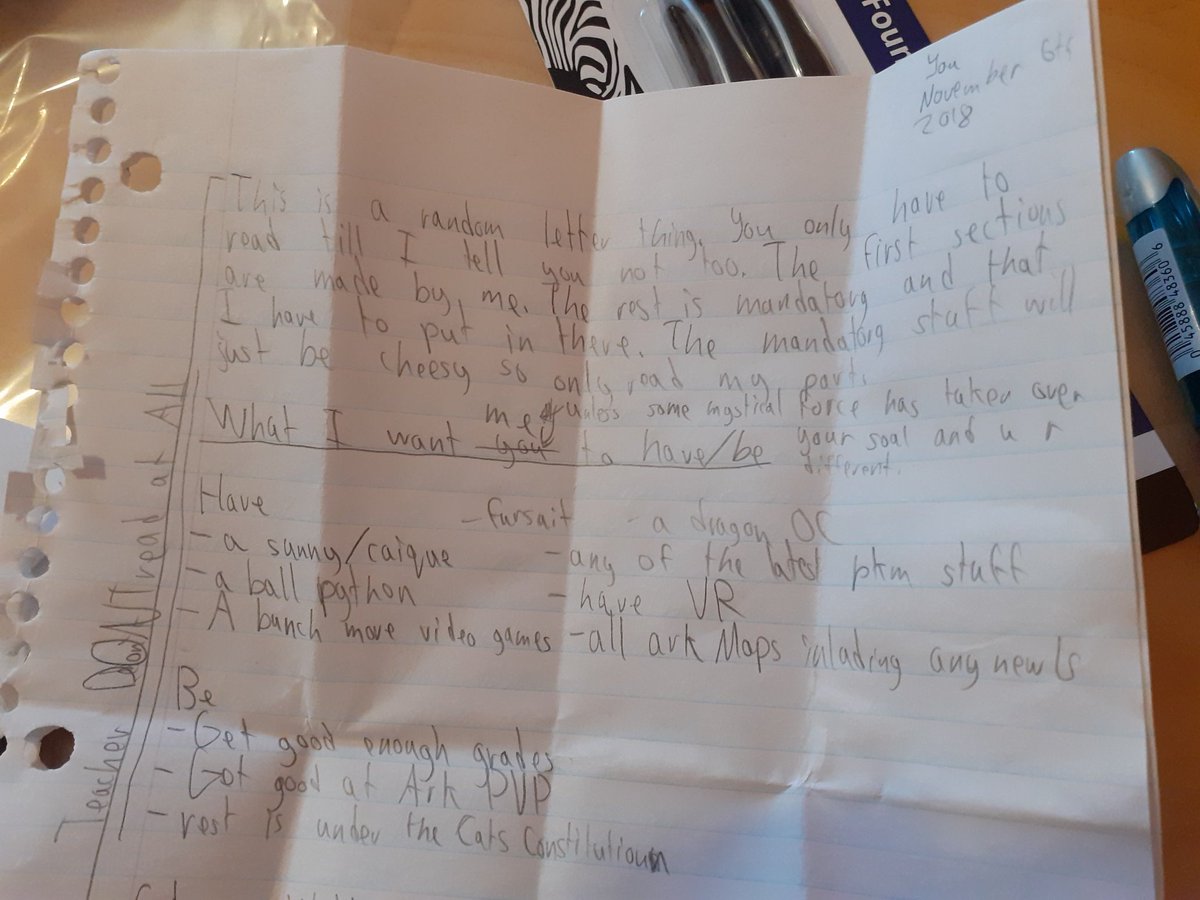 Four
You
November 6th
2018
This is a random letter thing. You only have to
read till I tell you not too. The first sections
are made by me. The rest is mandatory and that
I have to put in there. The mandatory stuff will
just be cheesy so only read my part.
unless some mystical force has taken over
your soal and u r
different.
What I want you me to have/be
Have
- fursait - a dragon OC
- a sunny/caique - any of the latest pkm stuff
- a ball python - have VR
- A bunch more video games - all ark Maps inlading any new
Be
- Get good enough grades
- Got good at Ark PVP
- rest is under the Cats Constitution
Teacher DON'T read at All
0 45888 48360 6